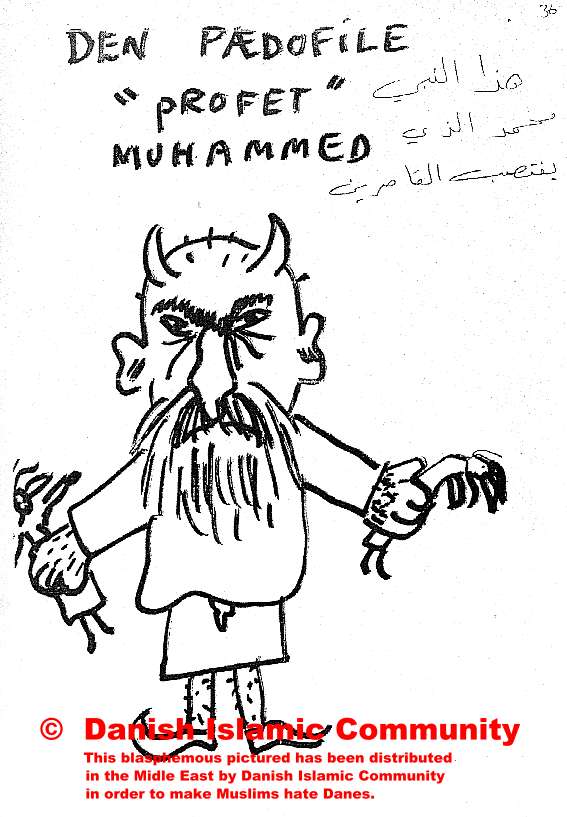 36
DEN PÆDOFILE
"PROFET"
MUHAMMED
هذا النبي
محمد الذي
يغتصب القاصرين
© Danish Islamic Community
This blasphemous pictured has been distributed
in the Midle East by Danish Islamic Community
in order to make Muslims hate Danes.